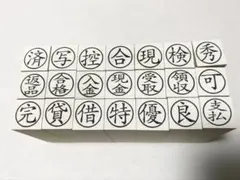 済 写 控 合 現 検 秀
返品 合格 入金 現金 受取 領収 可
完 貸 借 特 優 良 支払